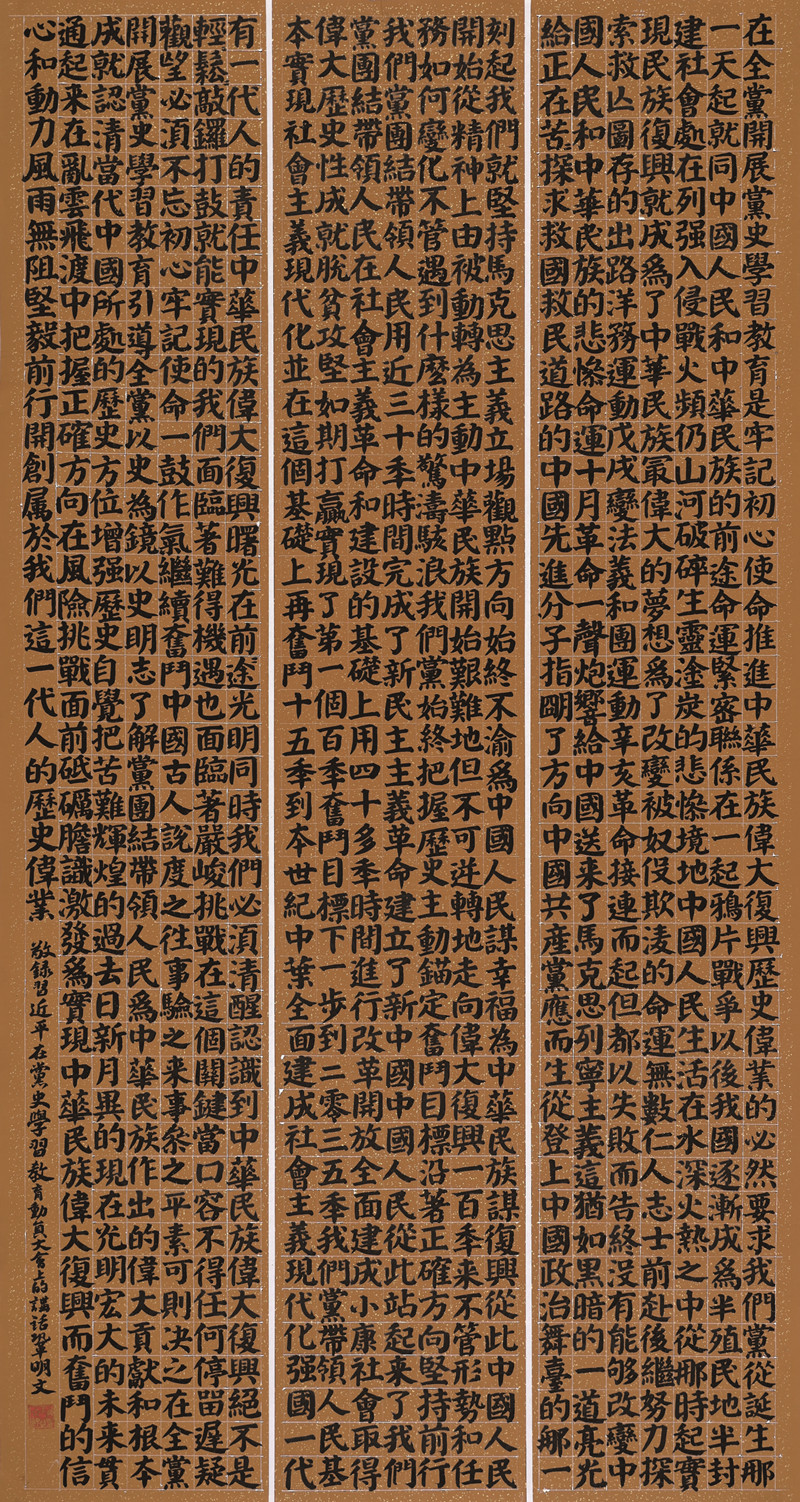 在全黨開展黨史學習教育是牢記初心使命推進中華民族偉大復興歷史偉業的必然要求我們黨從誕生那
一天起就同中國人民和中華民族的前途命運緊密聯係在一起鴉片戰爭以後我國逐漸成為半殖民地半封
建社會處在列强入侵戰火頻仍山河破碎生靈塗炭的悲慘境地中國人民生活在水深火熱之中從那時起實
現民族復興就成為了中華民族最偉大的夢想為了改變被奴役欺凌的命運無數仁人志士前赴後繼努力探
索救亡圖存的出路洋務運動戊戌變法義和團運動辛亥革命接連而起但都以失敗而告終没有能够改變中
國人民和中華民族的悲慘命運十月革命一聲炮響給中國送来了馬克思列寧主義這猶如黑暗的一道亮光
給正在苦探求救國救民道路的中國先進分子指明了方向中國共產黨應而生從登上中國政治舞臺的那一
刻起我們就堅持馬克思主義立場觀點方向始終不渝為中國人民謀幸福為中華民族謀復興從此中國人民
開始從精神上由被動轉為主動中華民族開始艱難地但不可逆轉地走向偉大復興一百年来不管形勢和任
務如何變化不管遇到什麼樣的驚濤駭浪我們黨始終把握歷史主動錨定奮鬥目標沿著正確方向堅持前行
我們黨團結帶領人民用近三十年時間完成了新民主主義革命建立了新中國中國人民從此站起来了我們
黨團結帶領人民在社會主義革命和建設的基礎上用四十多年時間進行改革開放全面建成小康社會取得
偉大歷史性成就脫貧攻堅如期打贏實現了第一個百年奮鬥目標下一步到二零三五年我們黨帶領人民基
本實現社會主義現代化並在這個基礎上再奮鬥十五年到本世紀中葉全面建成社會主義現代化强國一代
有一代人的責任中華民族偉大復興曙光在前途光明同時我們必須清醒認識到中華民族偉大復興絕不是
輕鬆敲鑼打鼓就能實現的我們面臨著難得機遇也面臨著嚴峻挑戰在這個關鍵當口容不得任何停留遲疑
觀望必須不忘初心牢記使命一鼓作氣繼續奮鬥中國古人說度之往事驗之来事參之平素可則决之在全黨
開展黨史學習教育引導全黨以史為鏡以史明志了解黨團結帶領人民為中華民族作出的偉大貢獻和根本
成就認清當代中國所處的歷史方位增强歷史自覺把苦難輝煌的過去日新月異的現在光明宏大的未来貫
通起来在亂雲飛渡中把握正確方向在風險挑戰面前砥礪膽識激發為實現中華民族偉大復興而奮鬥的信
心和動力風雨無阻堅毅前行開創属於我們這一代人的歷史偉業
敬録習近平在黨史學習教育動員大會上的講話 明文